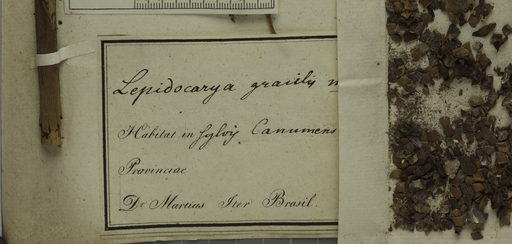 Lepidocarya gracilis
Habitat in sylvis Canumens
Provinciae
Dr Martius Iter Brasil.